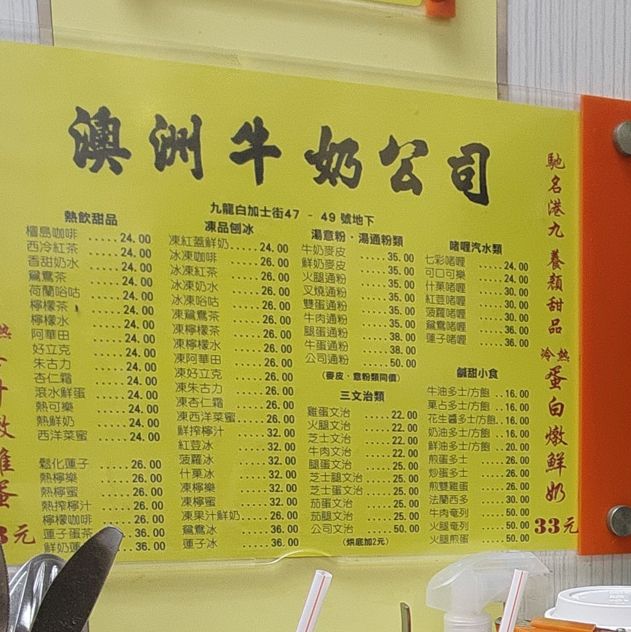 澳洲牛奶公司
九龍白加士街47 - 49 號地下
熱飲甜品
檀島咖啡 ..... 24.00
西冷紅茶 ..... 24.00
香甜奶水 ..... 24.00
鴛鴦茶 ..... 24.00
荷蘭哈咕 ..... 24.00
檸檬茶 ..... 24.00
檸檬水 ..... 24.00
阿華田 ..... 24.00
好立克 ..... 24.00
朱古力 ..... 24.00
杏仁霜 ..... 24.00
滾水鮮蛋 ..... 24.00
熱可樂 ..... 24.00
熱鮮奶 ..... 24.00
西洋菜蜜 ..... 24.00
鬆化蓮子 ..... 26.00
熱檸樂 ..... 26.00
熱檸蜜 ..... 26.00
熱搾檸汁 ..... 26.00
檸檬咖啡 ..... 26.00
蓮子蛋茶 ..... 36.00
鮮奶蓮 36.00
凍品刨冰
凍紅蓋鮮奶 ..... 24.00
冰凍咖啡 ..... 26.00
冰凍紅茶 ..... 26.00
冰凍奶水 ..... 26.00
冰凍哈咕 ..... 26.00
凍鴛鴦茶 ..... 26.00
凍檸檬茶 ..... 26.00
凍檸檬水 ..... 26.00
凍阿華田 ..... 26.00
凍好立克 ..... 26.00
凍朱古力 ..... 26.00
凍杏仁霜 ..... 26.00
凍西洋菜蜜 ..... 26.00
鮮搾檸汁 ..... 32.00
紅荳冰 ..... 32.00
菠蘿冰 ..... 32.00
什果冰 ..... 32.00
凍檸樂 ..... 32.00
凍檸蜜 ..... 32.00
凍果汁鮮奶 ..... 26.00
鴛鴦冰 ..... 36.00
蓮子冰 ..... 36.00
湯意粉・湯通粉類
牛奶麥皮 ..... 35.00
鮮奶麥皮 ..... 35.00
火腿通粉 ..... 35.00
叉燒通粉 ..... 35.00
雙蛋通粉 ..... 35.00
牛肉通粉 ..... 35.00
腿蛋通粉 ..... 38.00
牛蛋通粉 ..... 38.00
公司通粉 ..... 50.00
(麥皮・意粉類同價)
三文治類
雞蛋文治 ..... 22.00
火腿文治 ..... 22.00
芝士文治 ..... 22.00
牛肉文治 ..... 22.00
腿蛋文治 ..... 25.00
芝士腿文治 ..... 25.00
芝士蛋文治 ..... 25.00
茄蛋文治 ..... 25.00
茄腿文治 ..... 25.00
公司文治 ..... 50.00
(烘底加2元)
啫喱汽水類
七彩啫喱 ..... 24.00
可口可樂 ..... 24.00
什菓啫喱 ..... 30.00
紅荳啫喱 ..... 30.00
菠蘿啫喱 ..... 30.00
鴛鴦啫喱 ..... 36.00
蓮子啫喱 ..... 36.00
鹹甜小食
牛油多士/方飽 .. 16.00
菓占多士/方飽 .. 16.00
花生醬多士/方飽 .. 16.00
奶油多士/方飽 .. 16.00
鮮油多士/方飽 .. 20.00
煎蛋多士 ..... 26.00
炒蛋多士 ..... 26.00
煎雙雞蛋 ..... 26.00
法蘭西多 ..... 30.00
牛肉奄列 ..... 50.00
火腿奄列 ..... 50.00
火腿煎蛋 ..... 50.00
馳名港九 養顏甜品
冷熱 蛋白燉鮮奶
33元
熱
汁燉雞蛋
3元